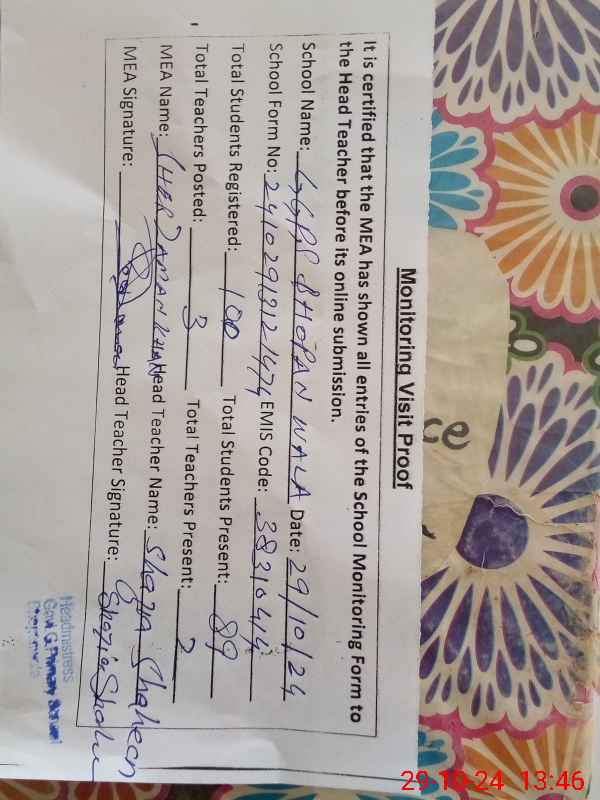 Monitoring Visit Proof
It is certified that the MEA has shown all entries of the School Monitoring Form to
the Head Teacher before its online submission.
School Name: GGPS BHOPAN WALA Date: 29/10/24
School Form No: EMIS Code: 38310414
Total Students Registered: 100 Total Students Present: 89
Total Teachers Posted: 3 Total Teachers Present: 2
MEA Name: SHER ZAMAN KHAN Head Teacher Name: Shazia Shaheen
MEA Signature: Head Teacher Signature: Shazia
Headmistress
Govt G. Primary School
ce
29-10-24 13:46